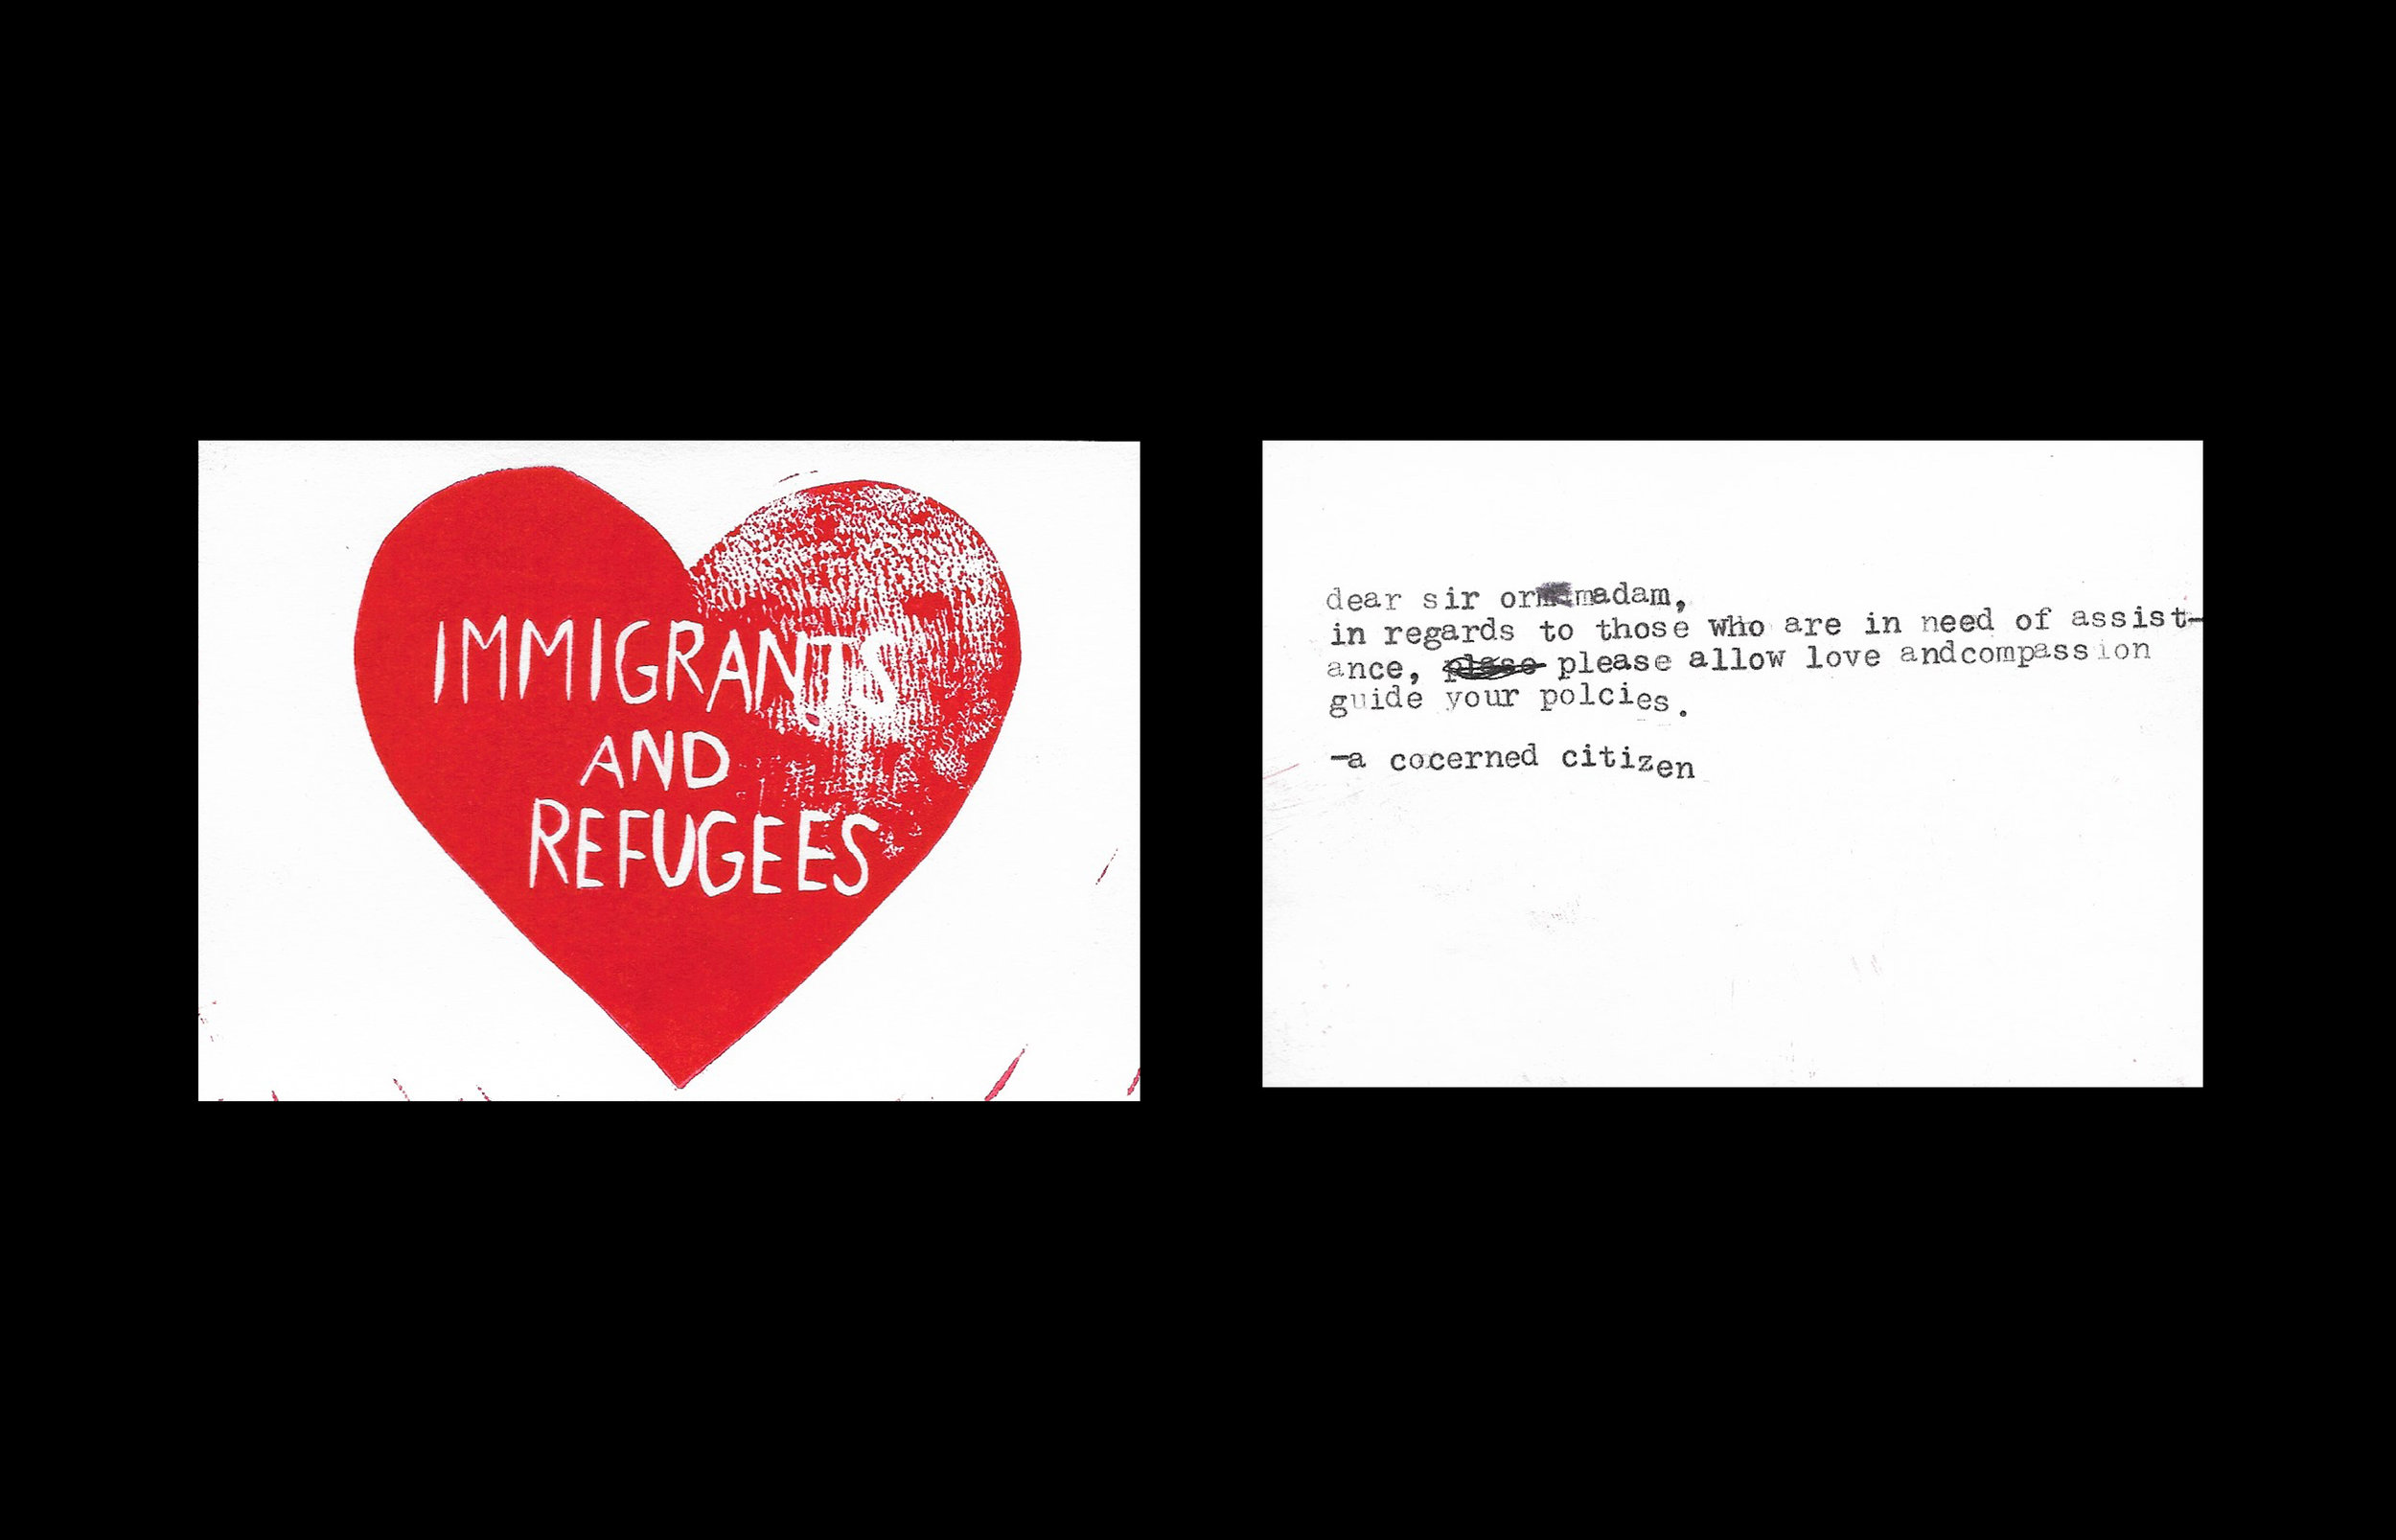 IMMIGRANTS
AND
REFUGEES
dear sir or madam,
in regards to those who are in need of assist-
ance, please allow love andcompassion
guide your polcies.
-a cocerned citizen